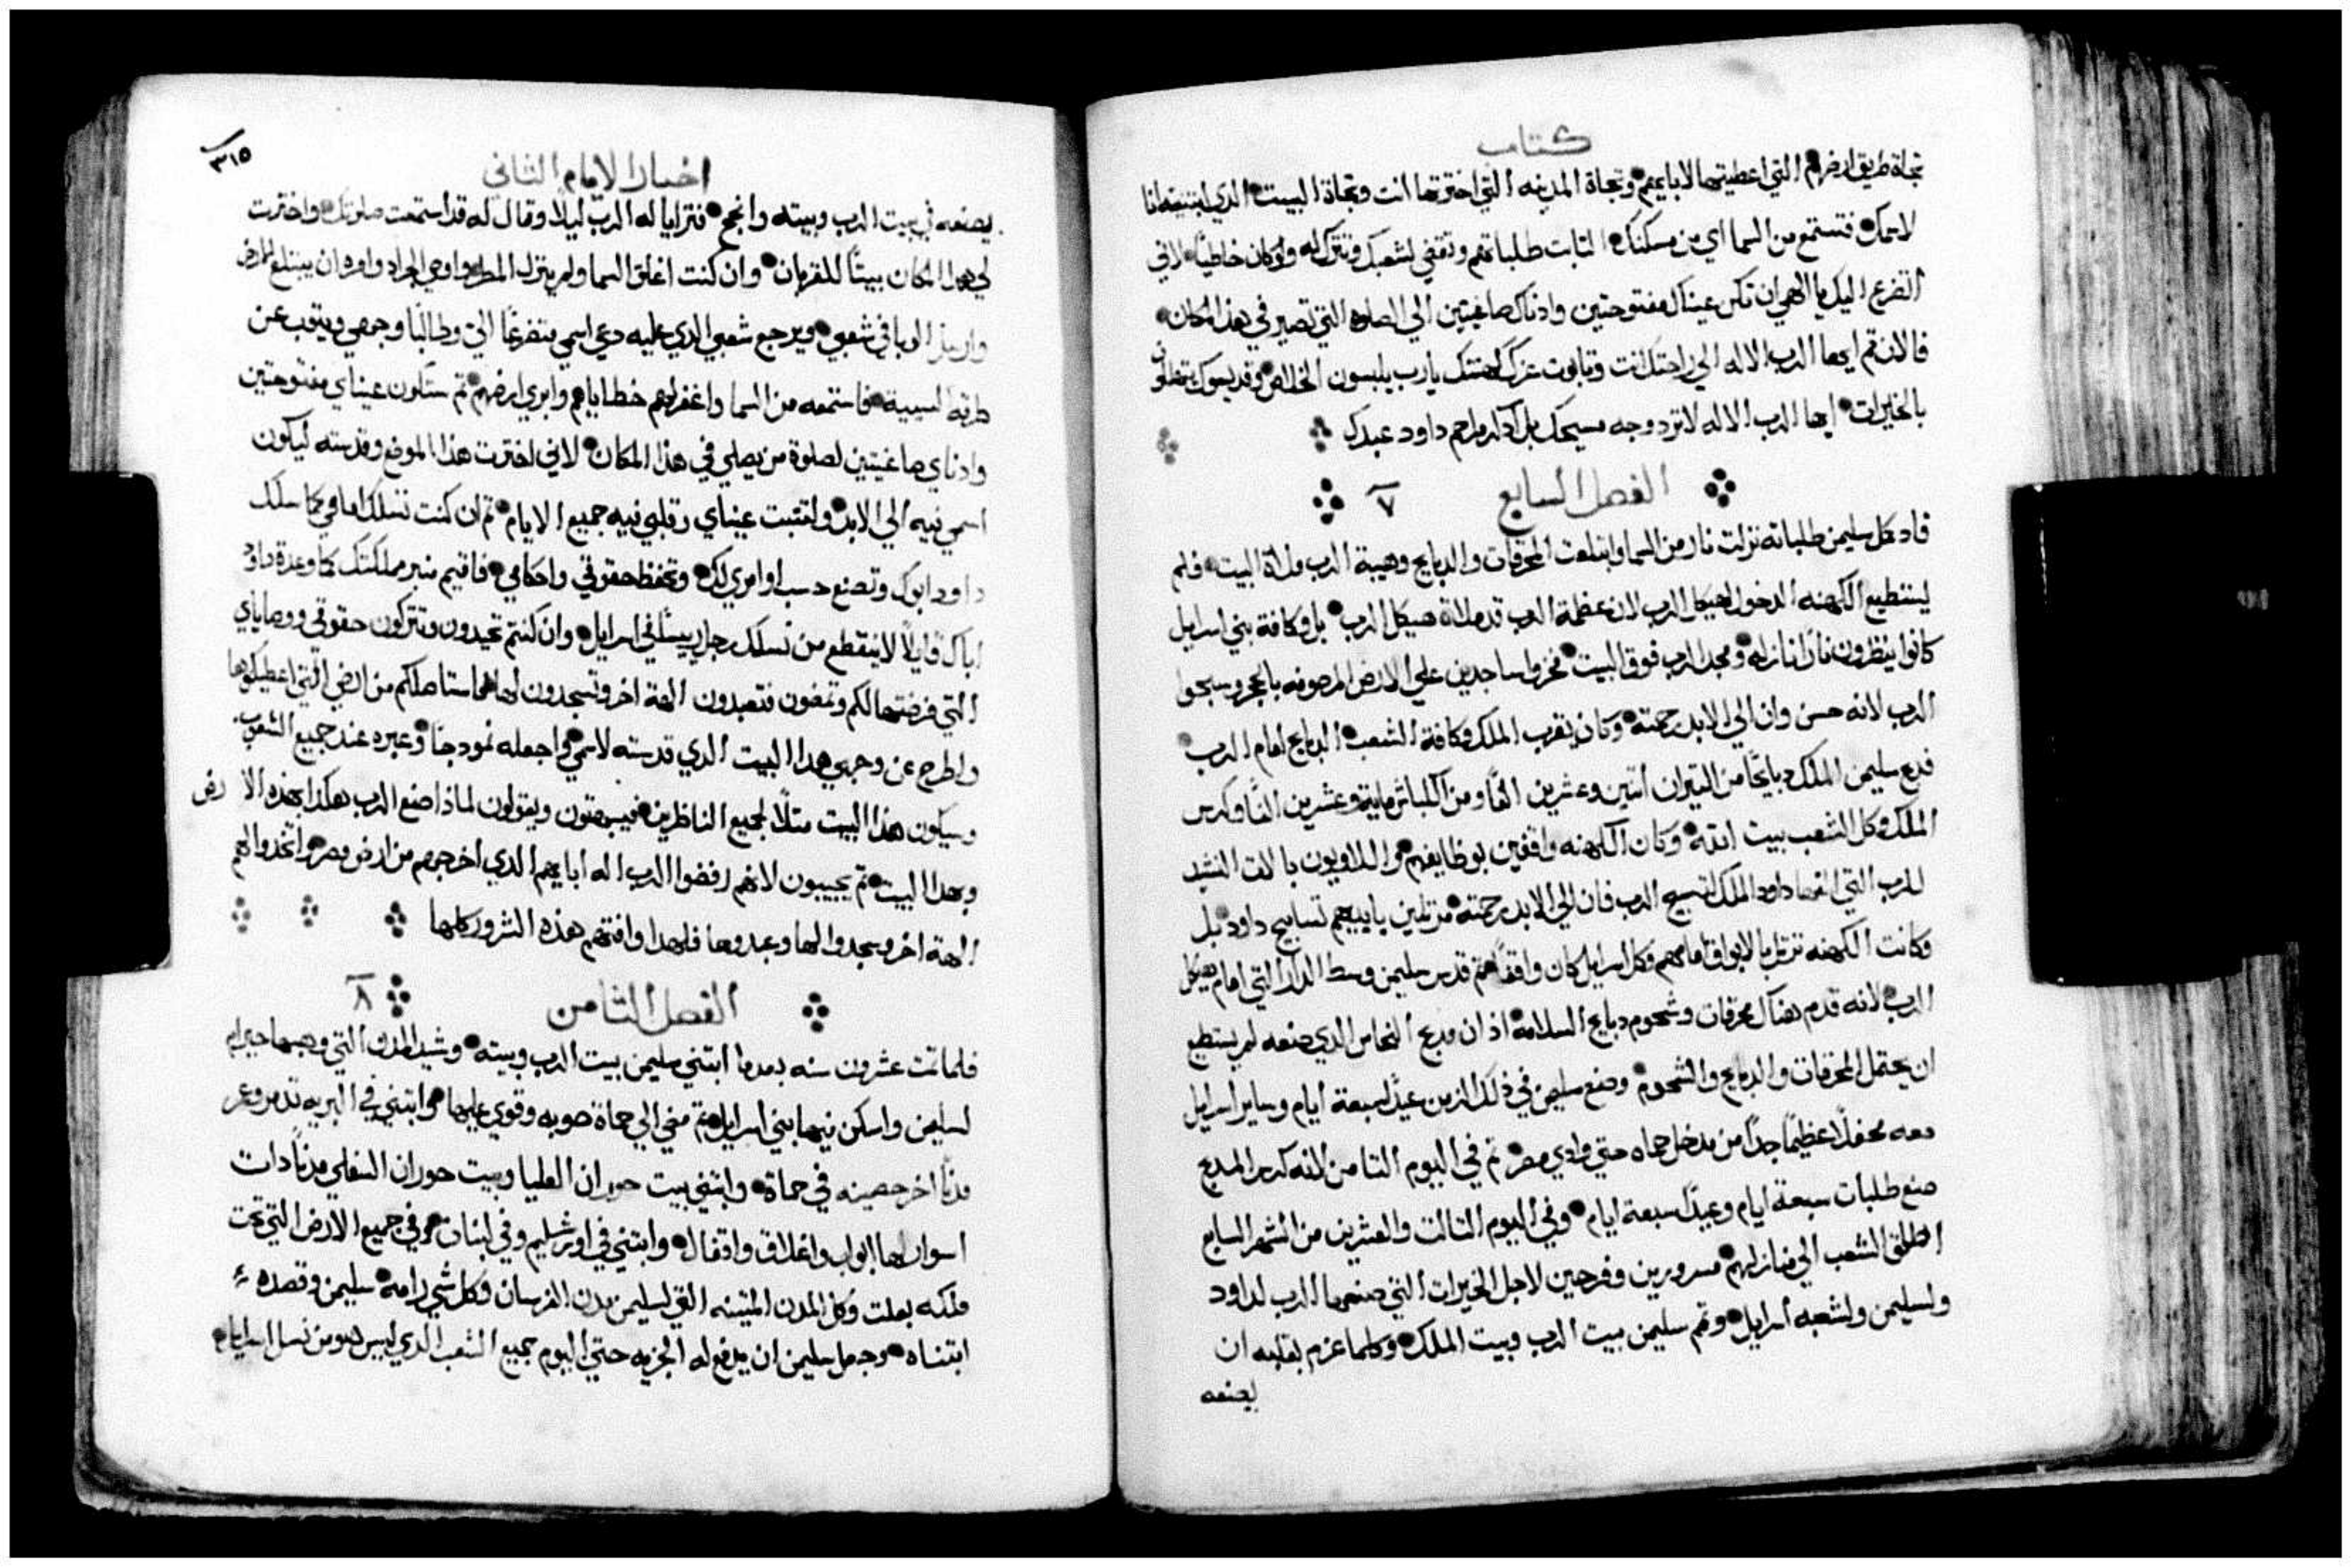 كتاب
تجاة طريق ارضهم التي اعطيتها لابايهم وتجاة المدينه التي اخترتها انت وتجاة البيت الدي ابتنيته انا
لاسمك فتستمع من السما اي من مسكنك الثابت طلباتهم وتقضي لشعبك وتترك له ولوكان خاطياً لاني
اتضرع اليك يا الاهي ان تكن عيناك مفتوحتين وادناك صاغيتين الي الصلوه التي تصير في هذا المكان
فالان قم ايها الرب الاله الي راحتك انت وتابوت عزك كهنتك يارب يلبسون الخلاص وقديسوك
بالخيرات ايها الرب الاله لا ترد وجه مسيحك بل اذكر مراحم داود عبدك
الفصل السابع ٧
فاد كمل سليمن طلباته نزلت نار من السما وابتلعت المحرقات والدبايح وهيبة الرب ملاة البيت فلم
يستطيع الكهنه الدخول لهيكل الرب لان عظمة الرب قد ملاة هيكل الرب بل وكافة بني اسرايل
كانوا ينظرون ناراً نازله ومجد الرب فوق البيت فخروا ساجدين علي الارض المرصوفه بالحجر وسبحوا
الرب لانه حسن وان الي الابد رحمته وكان يقرب الملك وكافة الشعب الدبايح امام الرب
فدبح سليمن الملك دبايحًا من التيران اتنين وعشرين الفًا ومن الكباش ماية وعشرين الفًا وكرس
الملك وكل الشعب بيت الله وكان الكهنه واقفين بوظايفهم واللاويون بالات النشيد
للرب التي الفها داود الملك لتسبيح الرب فان الي الابد رحمته مرتلين بايديهم تسابيح داود بل
وكانت الكهنه ترتل بالابواق امامهم وكل اسرايل كان واقفاً تم قدس سليمن وسط الدار التي امام هيكل
الرب لانه قدم هناك محرقات وشحوم دبايح السلامة اذ ان مدبح النحاس الدي صنعه لم يستطيع
ان يحتمل المحرقات والدبايح والشحوم وصنع سليمن في ذلك الزمن عيدًا سبعة ايام وساير اسرايل
معه محفلًا عظيمًا جدًا من مدخل حماه حتي وادي مصر تم في اليوم التامن لانه كرس المدبح
صنع طلبات سبعة ايام وعيدًا سبعة ايام وفي اليوم التالت والعشرين من الشهر السابع
اطلق الشعب الي منازلهم مسرورين وفرحين لاجل الخيرات التي صنعها الرب لداود
ولسليمن ولشعبه اسرايل وتم سليمن بيت الرب وبيت الملك وكلما عزم بقلبه ان
يصنعه
٣١٥
اخبار الايام الثاني
يصنعه في بيت الرب وبيته وانجح فترايا له الرب ليلًا وقال له قد استمعت صلوتك واخترت
لي هدا المكان بيتًا للقربان وان كنت اغلق السما ولم ينزل المطر واوصي الجراد وامره ان يبتلع الارض
وارسل الوبا في شعبي ويرجع شعبي الدي عليه دعي اسمي متضرعًا الي وطالبًا وجهي ويتوب عن
طرقه السيية فاستمعه من السما واغفر لهم خطاياهم وابري ارضهم تم ستكون عيناي مفتوحتين
وادناي صاغيتين لصلوة من يصلي في هذا المكان لاني اخترت هذا الموضع وقدسته ليكون
اسمي فيه الي الابد ولتتبت عيناي وقلبي فيه جميع الايام تم ان كنت تسلك امامي كما سلك
داود ابوك وتصنع حسب اوامري لك وتحفظ حقوقي واحكامي فاقيم منبر مملكتك كما وعدة داود
اباك قايلًا لا ينقطع من نسلك رجل رييسًا في اسرايل وان كنتم تحيدون وتتركون حقوقي ووصاياي
التي فرضتها لكم وتمضون فتعبدون الهة اخر وتسجدون لها فاستاصلكم من ارضي التي اعطيتكموها
واطرح عن وجهي هدا البيت الدي قدسته لاسمي واجعله نمودجًا وعبره عند جميع الشعوب
وسيكون هذا البيت متلًا لجميع الناظرين فيبهتون ويقولون لماذا صنع الرب هكدا بهذه الارض
وبهدا البيت تم يجيبون لانهم رفضوا الرب اله ابايهم الدي اخرجهم من ارض مصر واتخدوا لهم
الهة اخر وسجدوا لها وعبدوها فلهدا وافتهم هذه الشرور كلها
الفصل الثامن ٨
فلما تمت عشرون سنه بعدما ابتني سليمن بيت الرب وبيته وشيد المدن التي وهبها حيرام
لسليمن واسكن فيها بني اسرايل تم مضي الي حماة صوبه وقوي عليها وابتني في البريه تدمر وعمر
مدنًا اخر حصينه في حماة وابتني بيت حوران العليا وبيت حوران السفلي مدنًا دات
اسوار لها ابواب واغلاق واقفال وابتني في اورشليم وفي لبنان وفي جميع الارض التي تحت
ملكه بعلت وكل المدن المتينه التي لسليمن ومدن الفرسان وكل شي رامه سليمن وقصده
ابتناه وجعل سليمن ان يدفع له الجزيه حتي اليوم جميع الشعب الدي ليس هو من نسل اسرايل